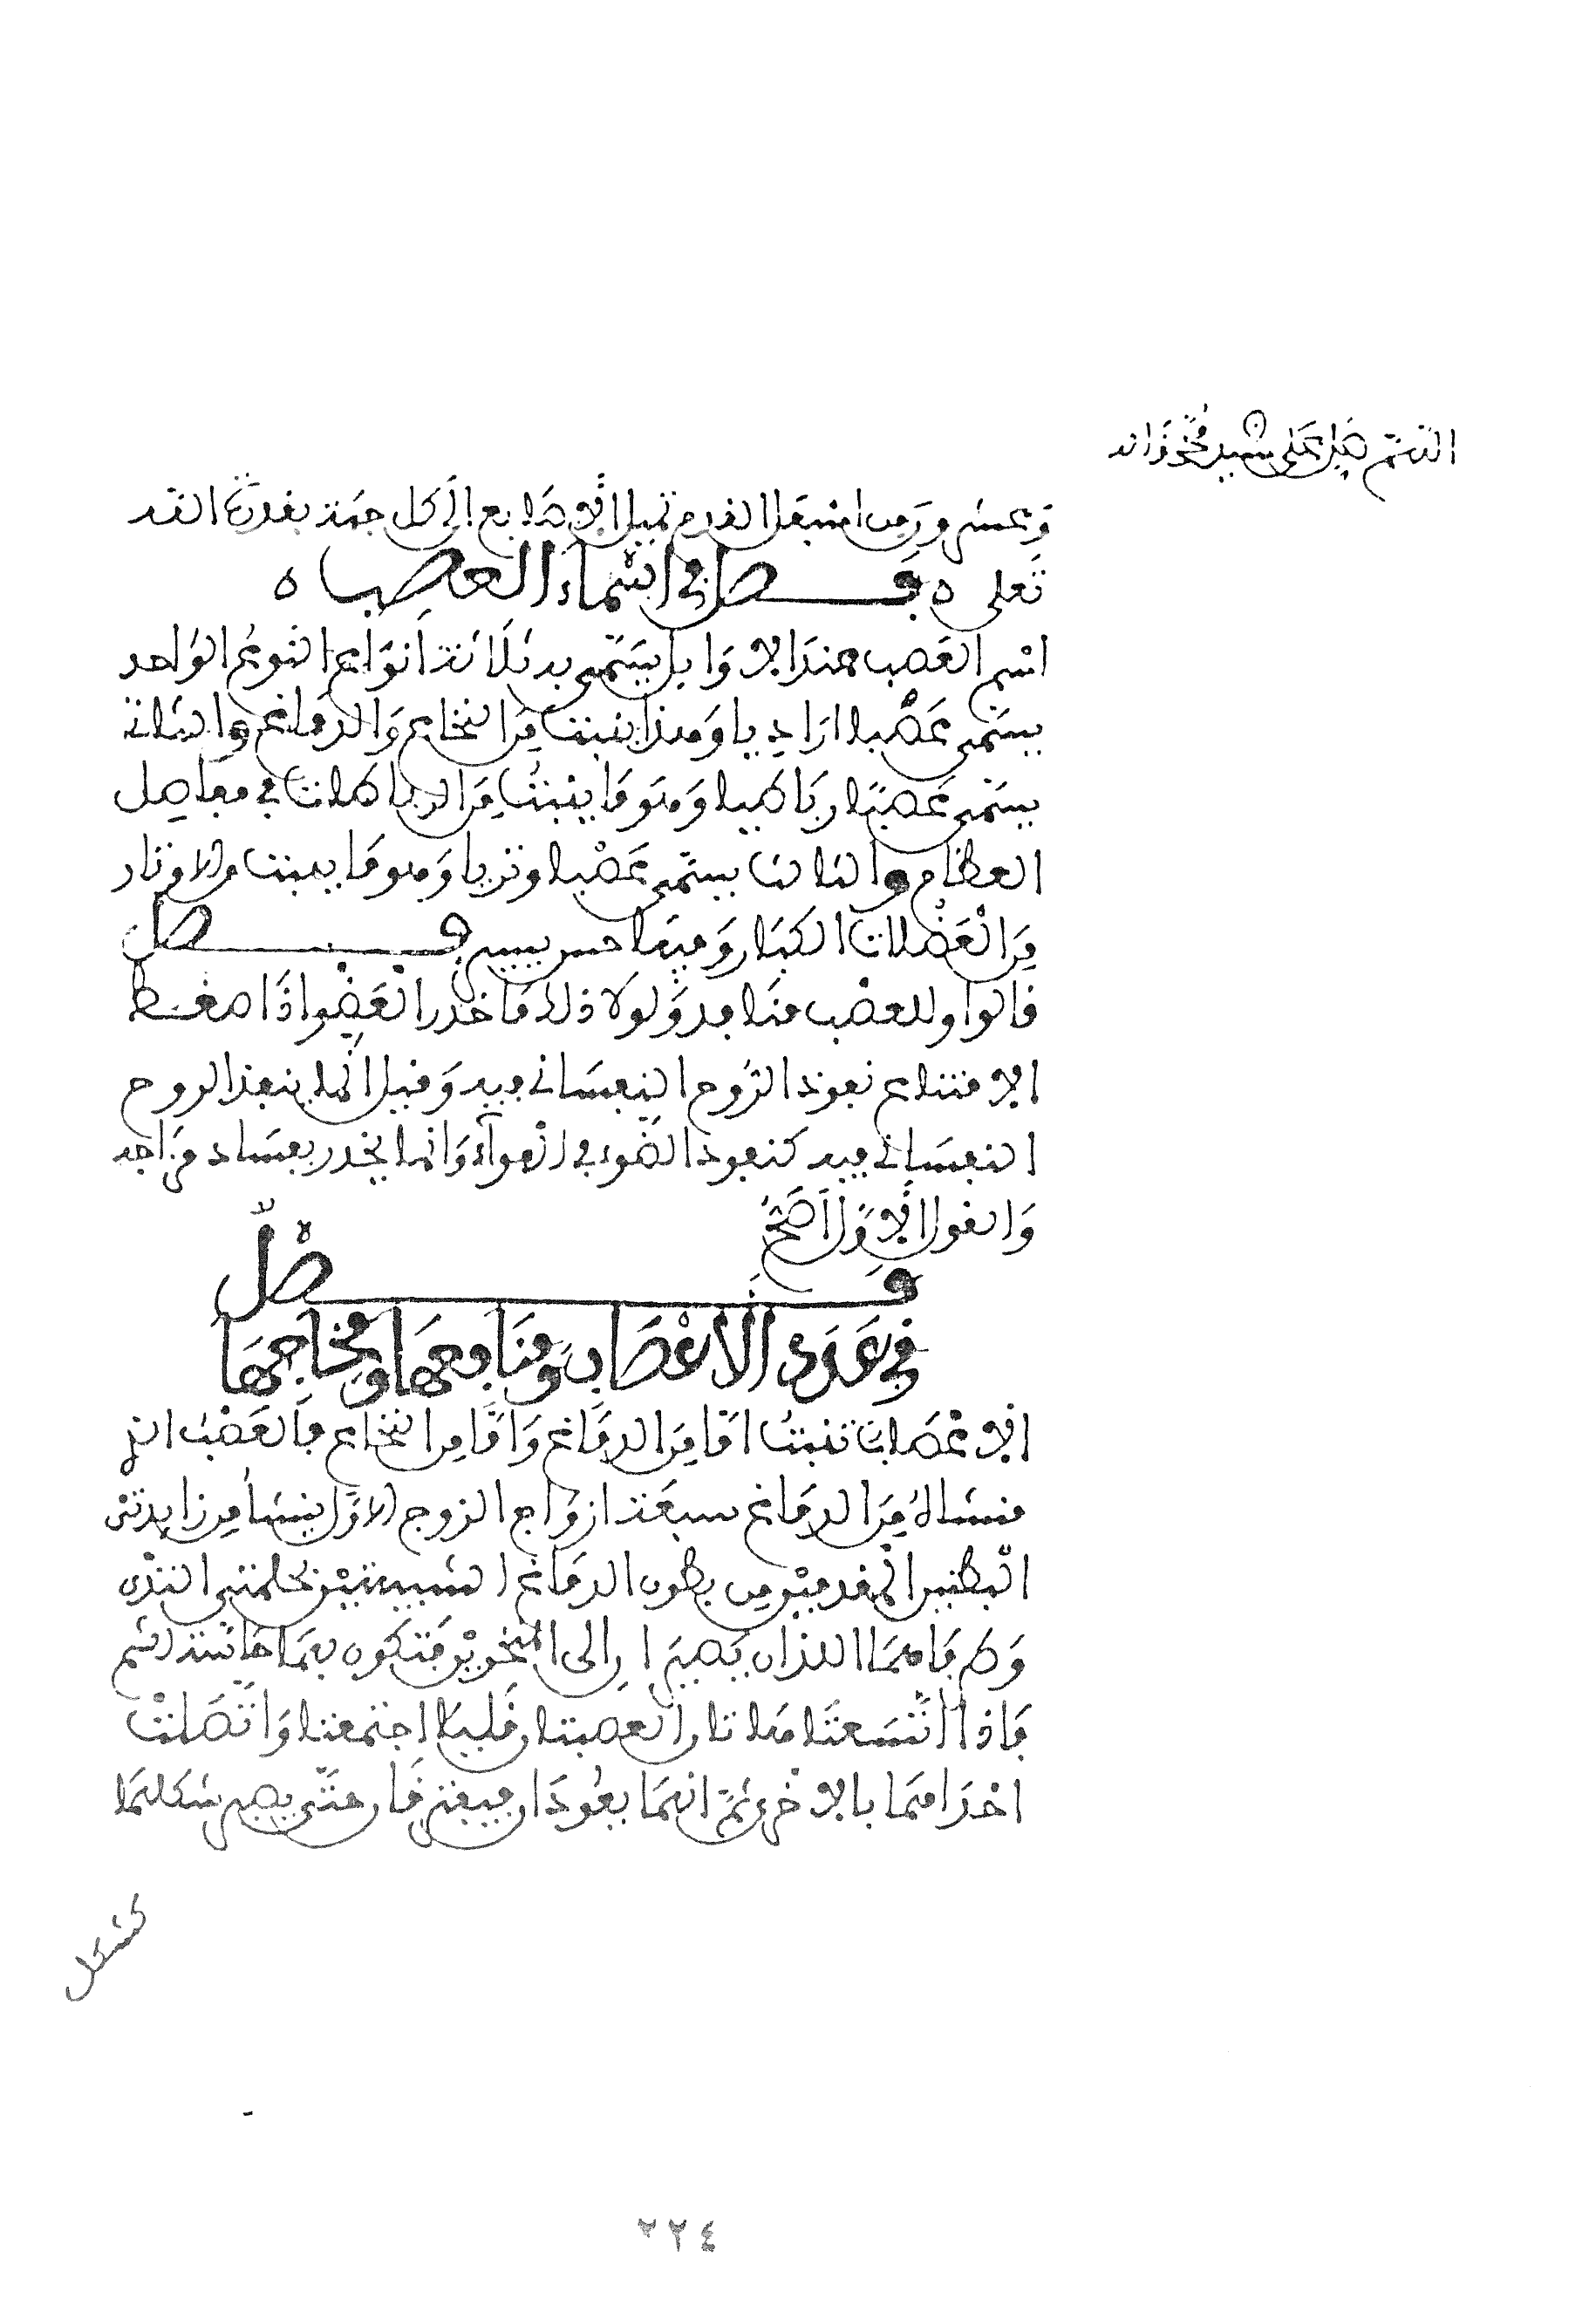 اللهم صل على سيدنا محمد وآله
وعشرون من اسفل القدم تميل الاصابع الى كل جهة بقدرة الله
تعلى ه فصل في اسماء العصب ه
اسم العصب عند الاوايل يسمى به ثلاثة انواع النوع الواحد
يسمى عصبا اراديا وهذا ينبت من النخاع والدماغ والثاني
يسمى عصبا رباطيا وهو ما ينبت من الرباطات في مفاصل
العظام والثالث يسمى عصبا وتريا وهو ما ينبت من الاوتار
من العضلات الكبار وفيها حس يسير فصل
قالوا وللعصب منافذ ولولا ذلك ما خدر العضو اذا ضغط
لامتناع نفوذ الروح النفساني فيه وقيل انما ينفذ الروح
النفساني فيه كنفوذ الضوء في الهواء وانما يخدر بفساد مزاجه
والقول الاول اصح
فصل
في عدد الاعصاب ومنافعها ومخارجها
الاعصاب تنبت اما من الدماغ واما من النخاع فالعصب الذي
منشاه من الدماغ سبعة ازواج الزوج الاول ينشا من زايدتي
البطنين المقدمين من بطون الدماغ الشبيهتين بحلمتي الثدي
وطرفاهما اللذان يصيران الى المنخرين فتكون بهما حاسة الشم
فاذا اتسعتا هاتان العصبتان قليلا اجتمعتا واتصلت
احداهما بالاخرى ثم انهما يعودان فيفترقان حتى يصير شكلهما
كشكل
٢٢٤